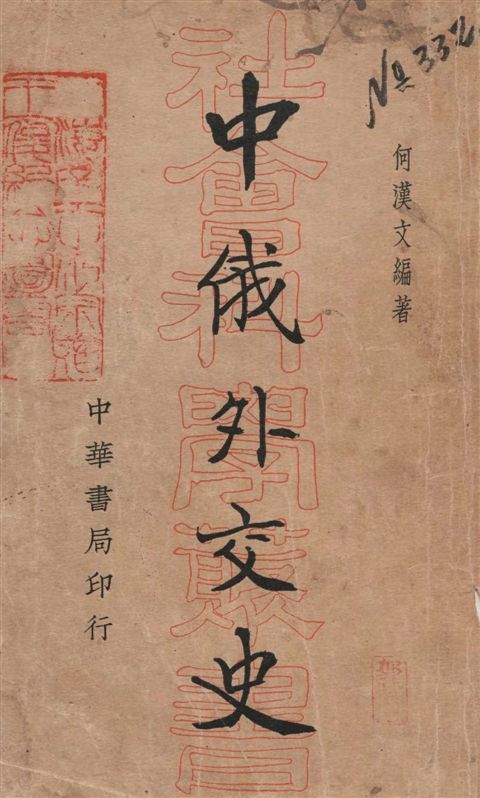 No 332
何漢文編著
中俄外交史
社會科學叢書
中華書局印行